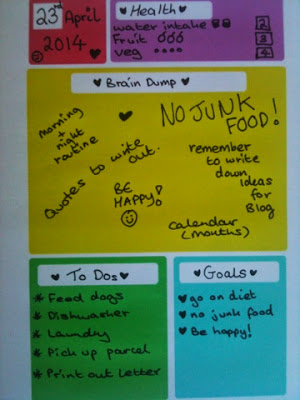 23rd April
2014
Health
water intake 2
Fruit 3
veg 4
Brain Dump
morning
+
night
routine
NO JUNK
FOOD!
Quotes to write
out.
remember
to write
down
Ideas
for
Blog
BE
HAPPY!
calendar
(months)
To Dos
* Feed dogs
* Dishwasher
* Laundry
* Pick up parcel
* Print out Letter
Goals
♥ go on diet
♥ no junk food
♥ Be happy!